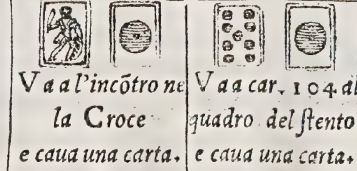 V a a l'incõtro ne
la Croce
e caua una carta.
V a a car. 104 al
quadro del ſtento
e caua una carta.